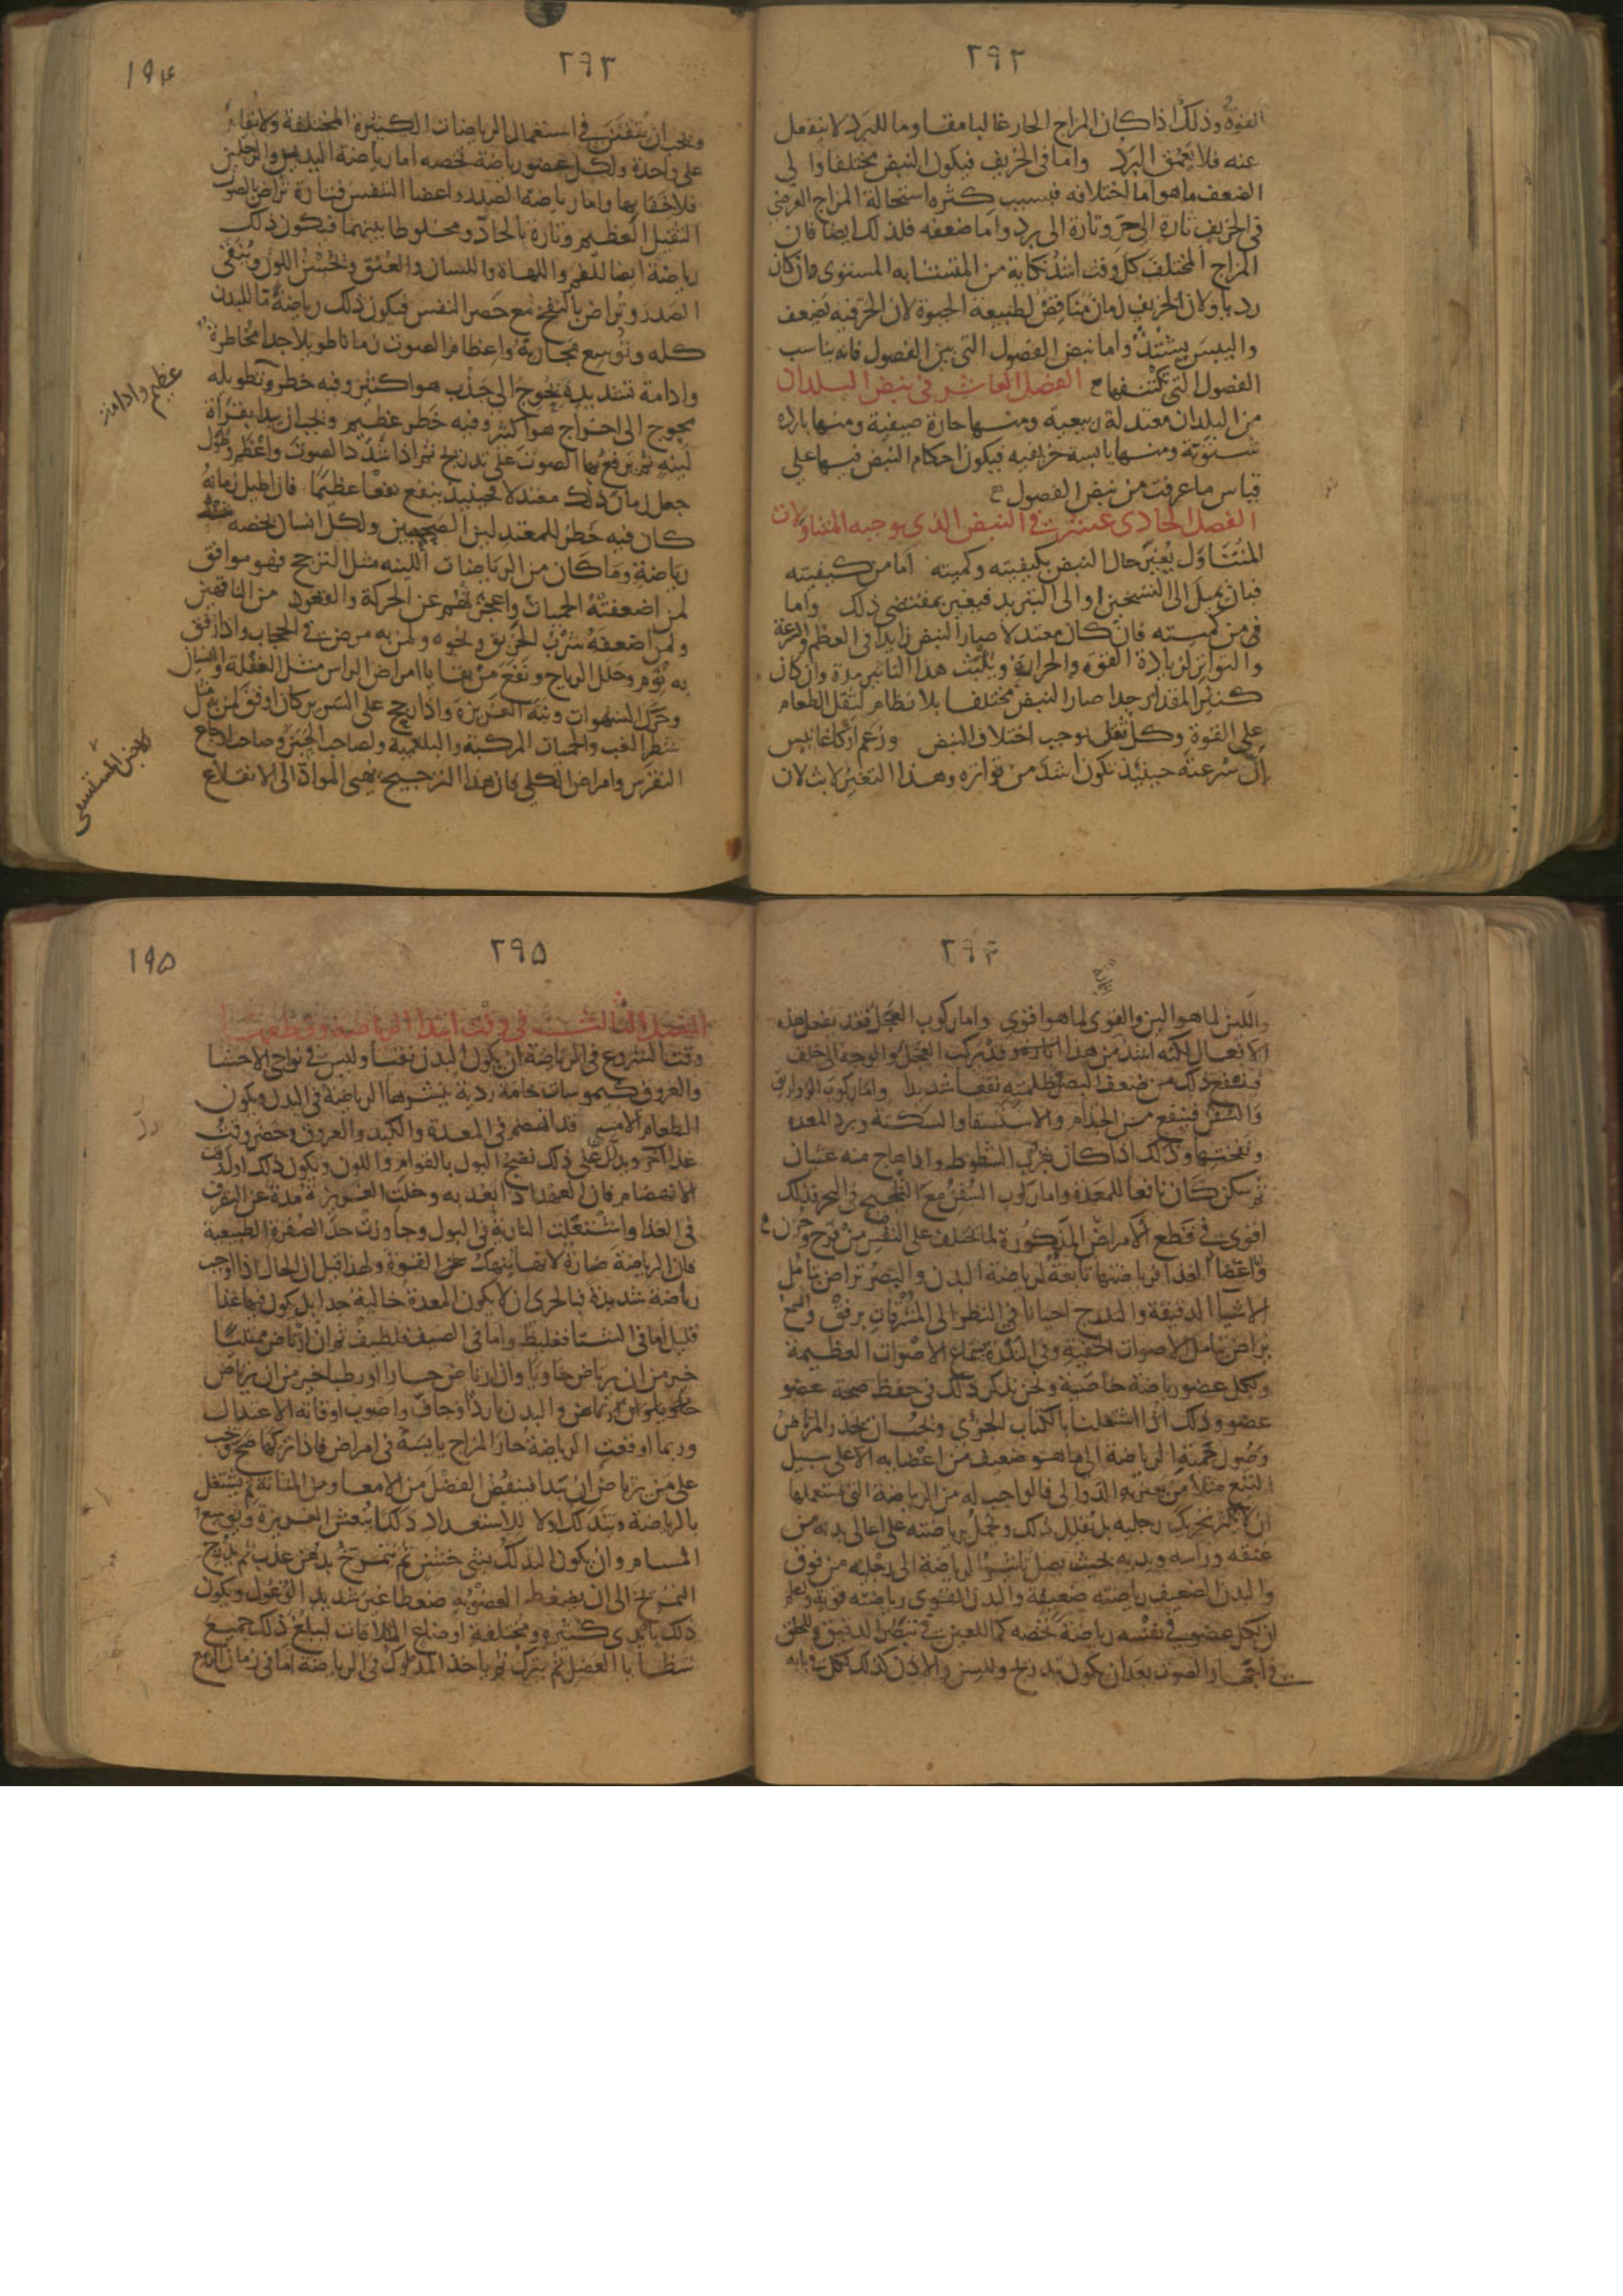 ٢٩٢
القوة وذلك اذا كان المزاج الحار غالبا مقاوما للبرد لا ينفعل
عنه فلا يعمق البرد واما فى الخريف فيكون النبض مختلفا والى
الضعف ما هو اما اختلافه فبسبب كثره استحالة المزاج العرضى
فى الخريف تارة الى حر وتارة الى برد واما ضعفه فلذلك ايضا فان
المزاج المختلف كل وقت اشد نكاية من المتشابه المستوى وان كان
رديا ولان الخريف زمان مناقض لطبيعة الحيوة لان الحر فيه يضعف
واليبس يشتد واما نبض الفصول التى بين الفصول فانه يناسب
الفصول التى تكتنفها الفصل العاشر فى نبض البلدان
من البلدان معتدلة ربيعية ومنها حارة صيفية ومنها بارده
شتوية ومنها يابسة خريفيه فيكون احكام النبض فيها على
قياس ما عرفت من نبض الفصول
الفصل الحادى عشر فى النبض الذى يوجبه المتناولات
المتناول يغير حال النبض بكيفيته وكميته اما من كيفيته
فبان يميل الى التسخين او الى التبريد فيغير بمقتضى ذلك واما
فى من كميته فان كان معتدلا صار النبض زايدا فى العظم والسرعة
والتواتر لزيادة القوة والحرارة ويلبث هذا التاثير مدة وان كان
كثير المقدار جدا صار النبض مختلفا بلا نظام لثقل الطعام
على القوة وكل ثقل يوجب اختلاف النبض وزعم اركاغانيس
ان سرعته حينئذ تكون اشد من تواتره وهذا التغير لابث لان
٢٩٣
١٩٤
ويجب ان يتفنن فى استعمال الرياضات الكثيرة المختلفة ولا يقام
على واحدة ولكل عضو رياضة تخصه اما رياضة اليدين والرجلين
فلا خفا بها واما رياضة الصدر واعضا التنفس فتارة تراض بالصوت
الثقيل العظيم وتارة بالحاد ومخلوطا بينهما فيكون ذلك
رياضة ايضا للفم واللهاة واللسان والعنق ويحسن اللون وينقى
الصدر وتراض بالنفخ مع حصر النفس فيكون ذلك رياضة ما للبدن
كله وتوسع مجاريه واعظام الصوت زمانا طويلا جدا مخاطرة
وادامة شديدة يحوج الى جذب هوا كثير وفيه خطر وتطويله
يحوج الى اخراج هوا كثير وفيه خطر عظيم ويجب ان يبدا بقراة
لينه ثم يرفع بها الصوت على تدريج ثم اذا شدد الصوت واعظم وطول
جعل زمان ذلك معتدلا فحينئذ ينفع نفعا عظيما فان اطيل زمانه
كان فيه خطر للمعتدلين الصحيحين ولكل انسان بحسبه
رياضة وما كان من الرياضات اللينه مثل الترجح فهو موافق
لمن اضعفته الحميات واعجزتهم عن الحركة والقعود من الناقهين
ولمن اضعفه شرب الخربق ونحوه ولمن به مرض فى الحجاب واذا رفق
به نوم وحلل الرياح ونفع من بقايا امراض الراس مثل الغفلة والنسيان
وحرك الشهوات ونبه الغريزة واذا رجح على السرير كان اوفق لمن به مثل
شطر الغب والحميات المركبة والبلغمية ولصاحب الحبن وصاحب اوجاع
النقرس وامراض الكلى فان هذا الترجيح يهيى المواد الى الانقلاع
عظيم وادامته
٢٩٤
واللين لما هو الين والقوى لما هو اقوى واما ركوب العجل فقد يفعل هذه
الافعال لكنه اشد من هذا اثارة وقد يركب العجل والوجه الى خلف
فينفع ذلك من ضعف البصر وظلمته نفعا شديدا واما ركوب الزواريق
والسفن فينفع من الجذام والاستسقا والسكتة وبرد المعده
ونفختها وذلك اذا كان بقرب الشطوط واذا هاج منه غثيان
ثم سكن كان نافعا للمعدة واما ركوب السفن مع التلجيج فى البحر فذلك
اقوى فى قطع الامراض المذكورة لما يختلف على النفس من فرح وحزن
واما اعضا الغذا فرياضتها تابعة لرياضة البدن والبصر تراض بتامل
الاشيا الدقيقة والتدرج احيانا فى النظر الى المشرقات برفق والسمع
يراض بتامل الاصوات الخفية وفى الندرة بسماع الاصوات العظيمة
ولكل عضو رياضة خاصية ونحن نذكر ذلك فى حفظ صحة عضو
عضو وذلك اذا اشتغلنا بالكتاب الجزئى ويجب ان يحذر المرتاض
وصول حمية الرياضة الى ما هو ضعيف من اعضايه الا على سبيل
التبع مثلا من يعتريه الدوالى فالواجب له من الرياضة التى يستعملها
ان لا يكثر تحريك رجليه بل يقلل ذلك ويحمل برياضته على اعالى بدنه من
عنقه وراسه ويديه بحيث يصل تاثير الرياضة الى رجليه من فوق
والبدن الضعيف رياضته ضعيفة والبدن القوى رياضته قوية واعلم
ان لكل عضو فى نفسه رياضة تخصه كما للعين فى تبصر الدقيق وللحلق
فى اجهار الصوت بعد ان يكون بتدريج وللسن والاذن كذلك لكل فى بابه
٢٩٥
١٩٥
الفصل الثالث فى وقت ابتدا الرياضة وقطعها
وقت الشروع فى الرياضة ان يكون البدن نقيا وليس فى نواحى الاحشا
والعروق كيموسات خامة ردية ينشرها الرياضة فى البدن ويكون
الطعام الامسى قد انهضم فى المعدة والكبد والعروق وحضر وقت
غذا اخر ويدل على ذلك نضج البول بالقوام واللون ويكون ذلك اول وقت
الانهضام فان العهد اذا بعد به وخلت الغريزة مدة عن التصرف
فى الغذا واشتعلت النارية فى البول وجاوزت حد الصفرة الطبيعية
فان الرياضة ضارة لانها تنهك القوة ولهذا قيل ان الحال اذا اوجبت
رياضة شديدة فبالحرى ان لا يكون المعدة خالية جدا بل يكون فيها غذا
قليل اما فى الشتا فغليظ واما فى الصيف فلطيف ثم ان ارتاض ممتليا
خير من ان يرتاض خاويا وان ارتاض حارا او رطبا خير من ان يرتاض
والبدن بارد او جاف واصوب اوقاته الاعتدال
وربما اوقعت الرياضة حار المزاج يابسه فى امراض فاذا تركها صح ويجب
على من يرتاض ان يبدا فينقض الفضل من الامعا ومن المثانة ثم يشتغل
بالرياضة ويتدلك اولا للاستعداد دلكا ينعش الغريزة ويوسع
المسام وان يكون التدلك بشى خشن ثم يتمرخ بدهن عذب ثم يدرج
التمريخ الى ان يضغط العضو به ضغطا غير شديد الوغول ويكون
ذلك بايدى كثيره ومختلفة اوضاع الملاقات ليبلغ ذلك جميع
شظايا العضل ثم يترك ثم ياخذ المدلوك فى الرياضة اما فى زمان الربيع